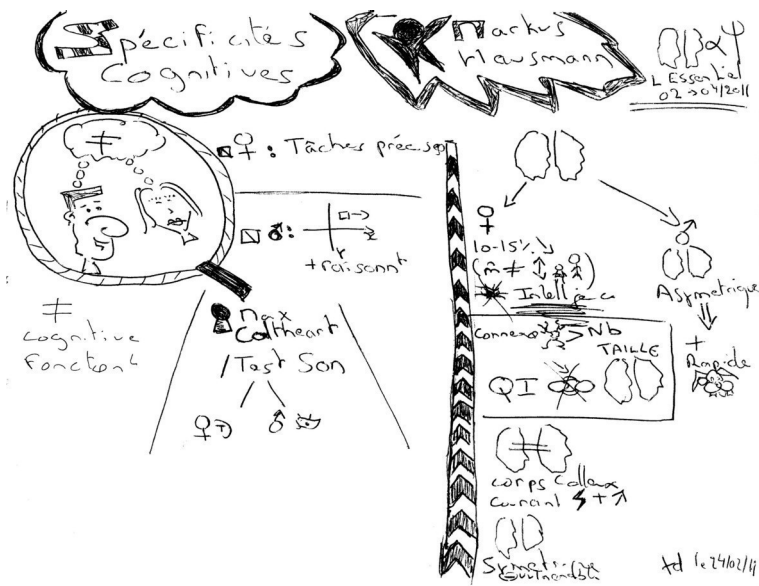 Spécificités
Cognitives
Markus
Hausmann
L'Essentiel
02 → 04/2011
≠
♀ : Tâches précises
♂ :
+ raisonnt
≠
cognitive
fonctionl
Max
Coltheart
/ Test Son
♀
♂
♀
10-15%
(m̂ ≠ ↕ )
Intelligence
♂
Asymetrique
⇓
+
Rapide
Connexo > Nb
TAILLE
QI
corps Calleux
courant + ↗
Symetrique
td le 24/02/11